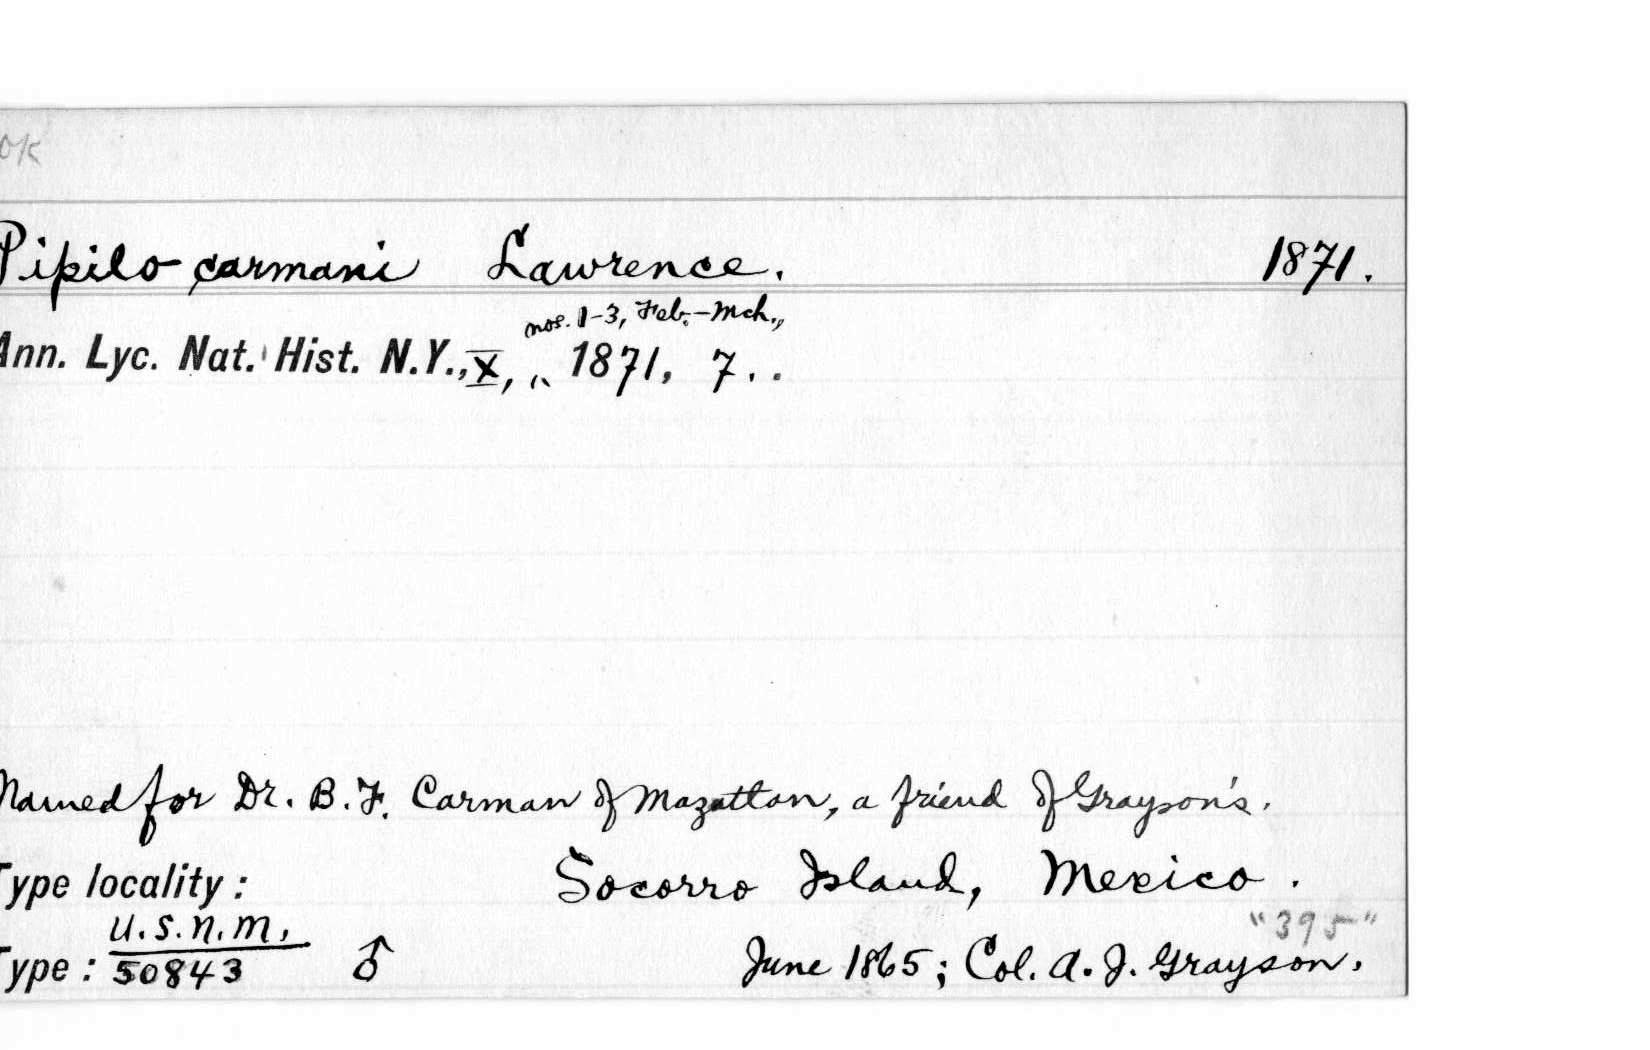 ok
Pipilo carmani Lawrence. 1871.
nos. 1-3, Feb.-Mch.,
Ann. Lyc. Nat. Hist. N.Y., X, 1871, 7.
Named for Dr. B.F. Carman of Mazatlan, a friend of Grayson's.
Type locality: Socorro Island, Mexico.
U.S.N.M. "395"
Type: 50843 ♂ June 1865; Col. A.J. Grayson.